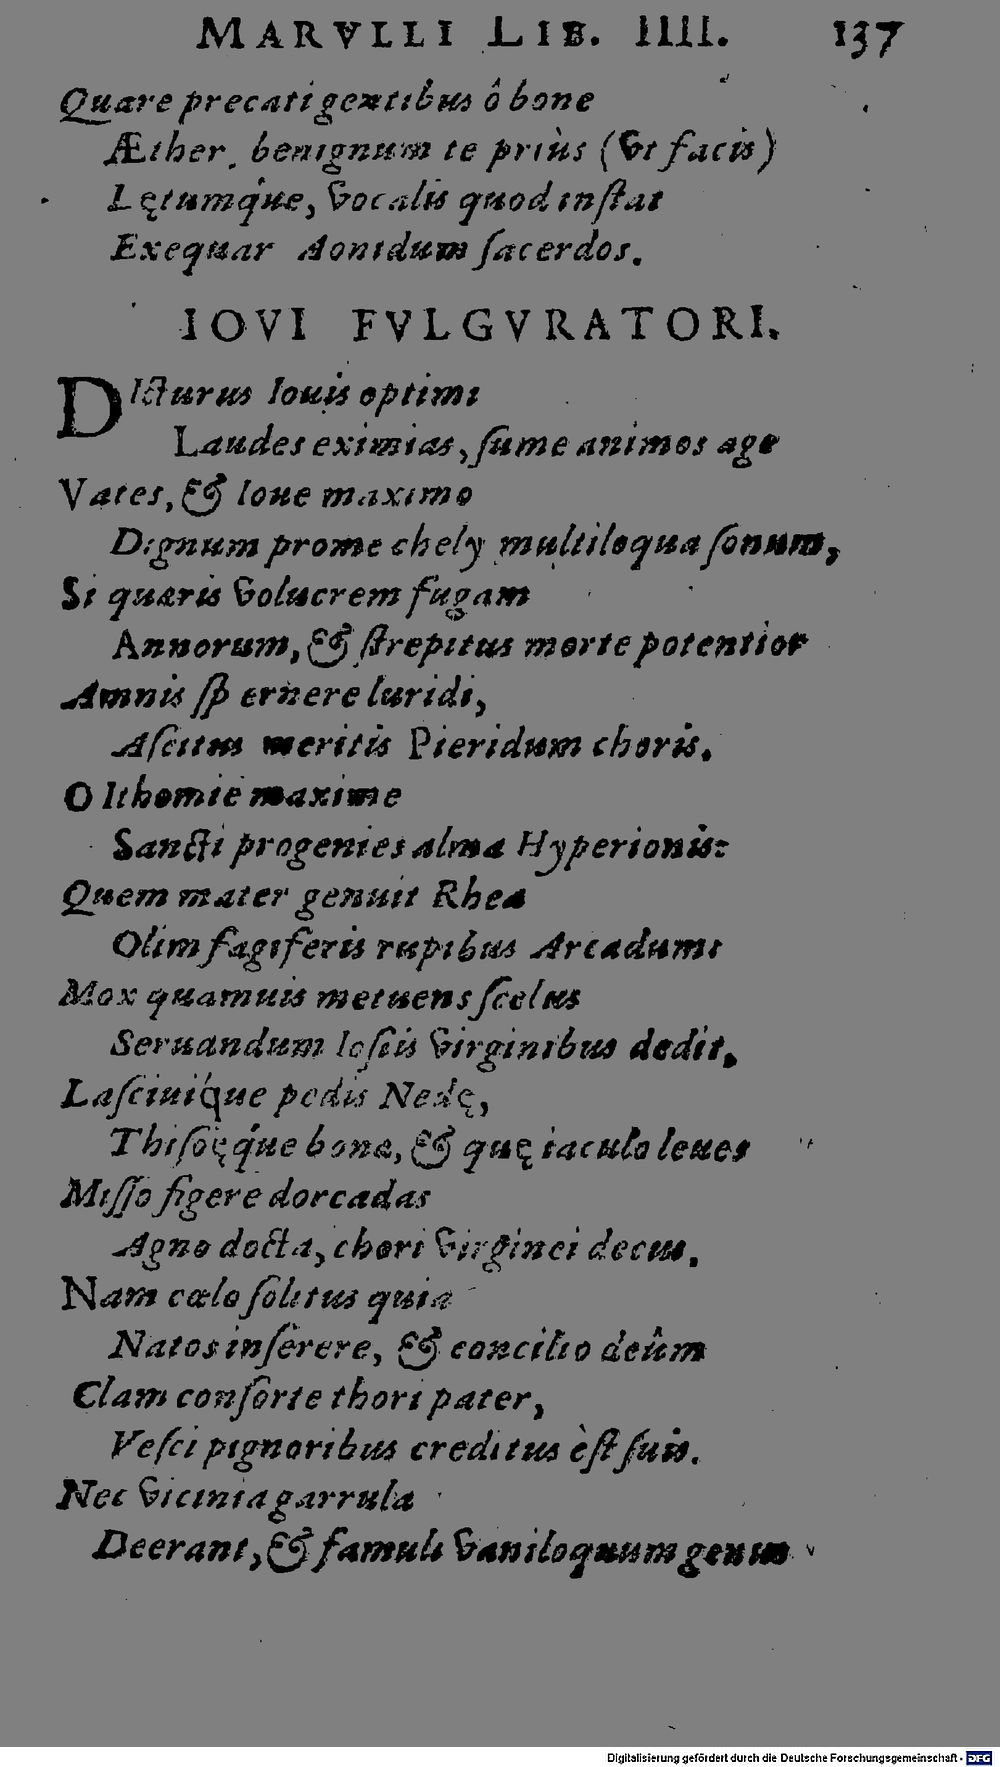 MARVLLI LIB. IIII. 137
Quare precati gentibus ô bone
Æther, benignum te priùs (vt facis)
Lętumq́ue, vocalis quod instat
Exequar Aonidum sacerdos.
IOVI FVLGVRATORI.
DIcturus Iouis optimi
Laudes eximias, sume animos age
Vates, & Ioue maximo
Dignum prome chely multiloqua sonum,
Si quæris volucrem fugam
Annorum, & strepitus morte potentior
Amnis spernere luridi,
Ascitus meritis Pieridum choris.
O Ithomie maxime
Sancti progenies alma Hyperionis:
Quem mater genuit Rhea
Olim fagiferis rupibus Arcadum:
Mox quamuis metuens scelus
Seruandum Iosiis virginibus dedit,
Lasciuiq́ue pedis Nedę,
Thisoęq́ue bonæ, & quę iaculo leues
Misso figere dorcadas
Agno docta, chori virginei decus.
Nam cœlo solitus quia
Natos inserere, & concilio deûm
Clam consorte thori pater,
Vesci pignoribus creditus est suis.
Nec vicinia garrula
Deerant, & famuli vaniloquum genus
Digitalisierung gefördert durch die Deutsche Forschungsgemeinschaft - DFG